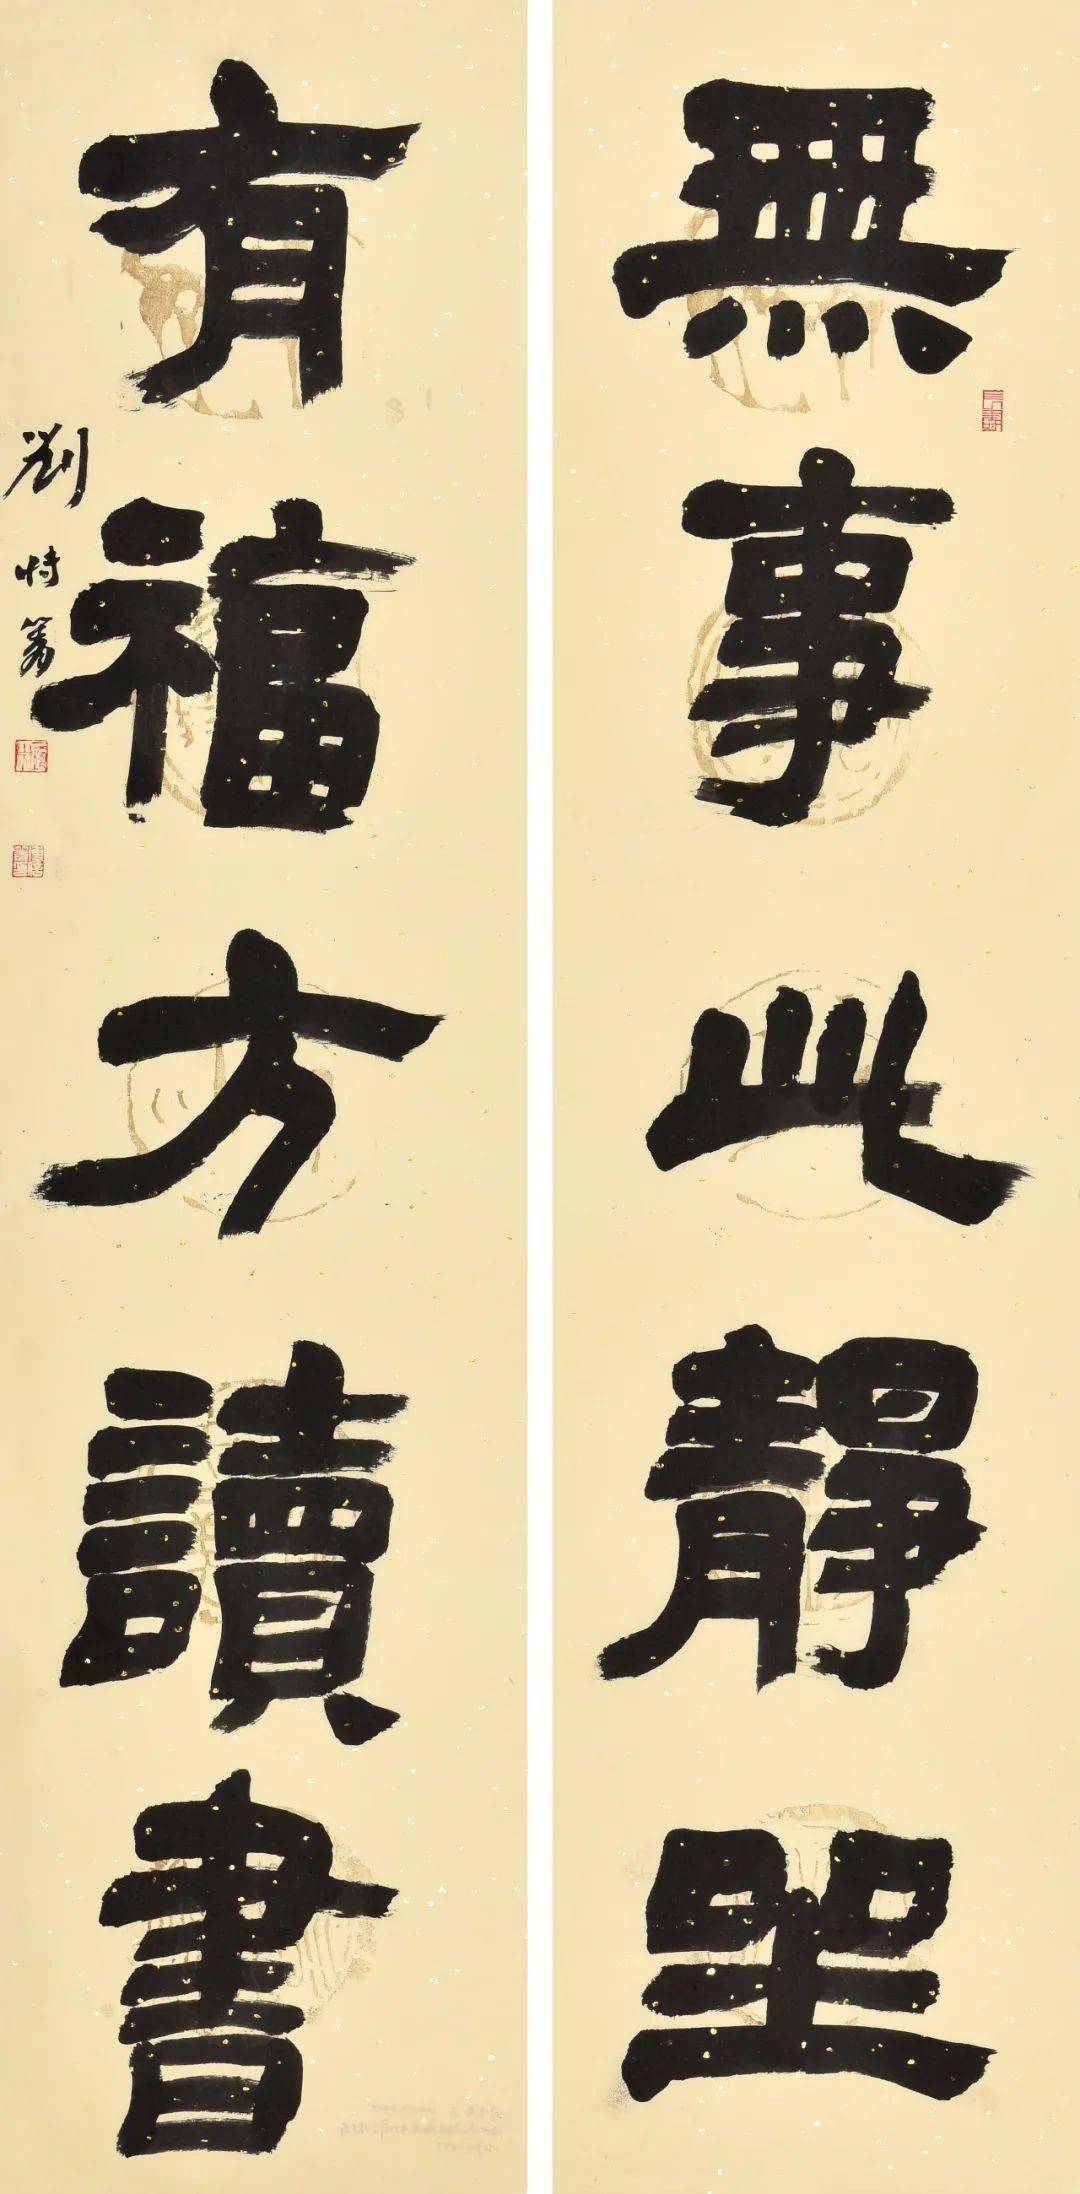 無事此靜坐
有福方讀書
劉恃篤